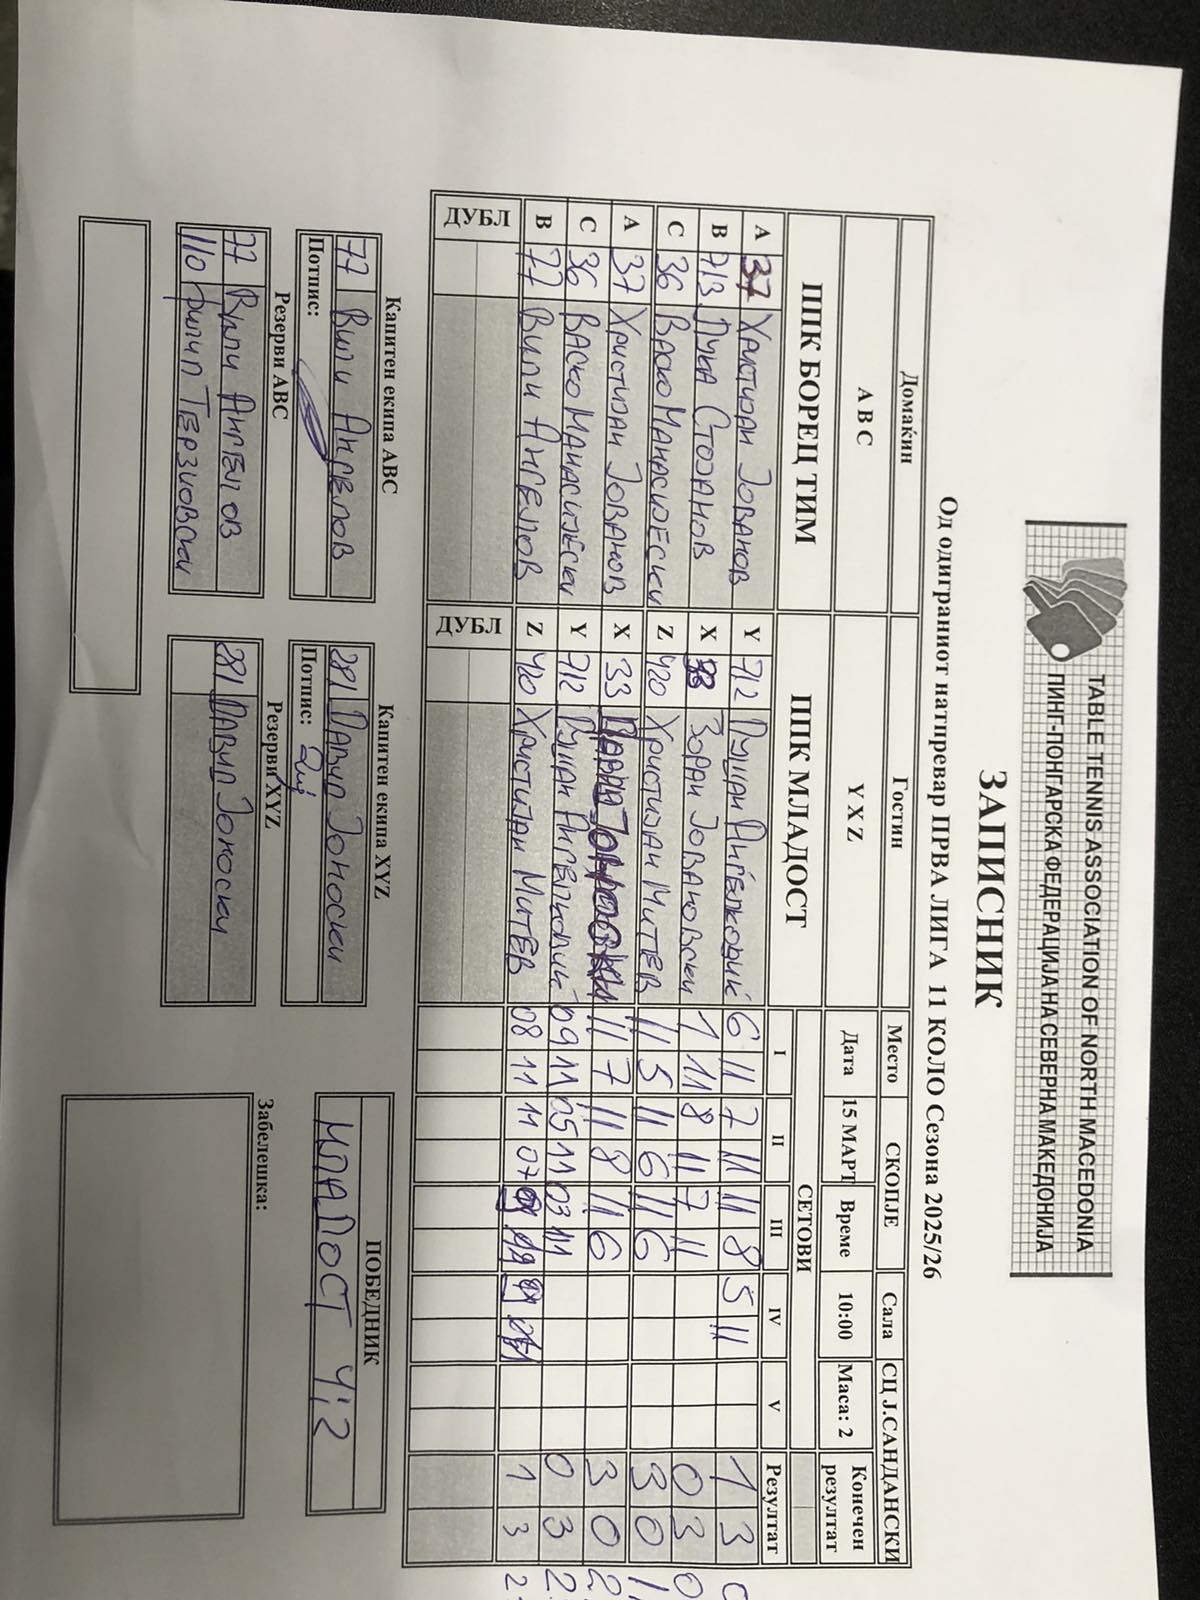 TABLE TENNIS ASSOCIATION OF NORTH MACEDONIA
ПИНГ-ПОНГАРСКА ФЕДЕРАЦИЈА НА СЕВЕРНА МАКЕДОНИЈА
ЗАПИСНИК
Од одиграниот натпревар ПРВА ЛИГА 11 КОЛО Сезона 2025/26
Домаќин Гостин Место СКОПЈЕ Сала СЦ Ј.САНДАНСКИ
A B C Y X Z Дата 15 МАРТ Време 10:00 Маса: 2 Конечен резултат
ППК БОРЕЦ ТИМ ППК МЛАДОСТ СЕТОВИ
I II III IV V Резултат
A 37 Христијан Јованов Y 712 Душан Анѓелковиќ 6 11 7 11 11 8 5 11 1 3
B 713 Лука Стојанов X 33 Зоран Јовановски 1 11 8 11 7 11 0 3 0
C 36 Васко Манасијески Z 420 Христијан Митев 11 5 11 6 11 6 3 0
A 37 Христијан Јованов X 33 11 7 11 8 11 6 3 0 2
C 36 Васко Манасијески Y 712 Душан Анѓелковиќ 09 11 05 11 03 11 0 3 2
B 77 Вили Ангелов Z 420 Христијан Митев 08 11 11 07 1 3 2
ДУБЛ ДУБЛ
Капитен екипа ABC Капитен екипа XYZ ПОБЕДНИК
77 Вили Ангелов 281 Давид Јоноски МЛАДОСТ 4:2
Потпис: Потпис:
Резерви ABC Резерви XYZ Забелешка:
77 Вили Ангелов 281 Давид Јоноски
110 Филип Терзиовски